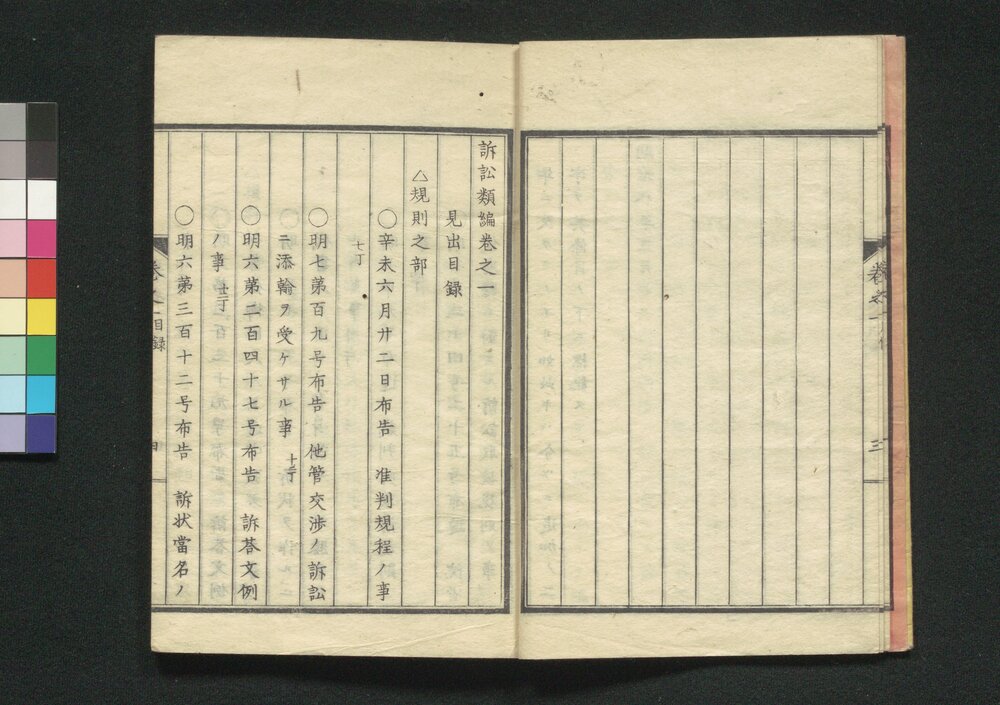 訴訟類編巻之一
見出目録
△規則之部
〇辛未六月廿二日布告 准判規程ノ事
七丁
〇明七第百九号布告 他管交渉ノ訴訟
ニ添翰ヲ受ケサル事 十丁
〇明六第二百四十七号布告 訴荅文例
ノ事
〇明六第三百十二号布告 訴状當名ノ
巻之一目録
四
巻之一
三